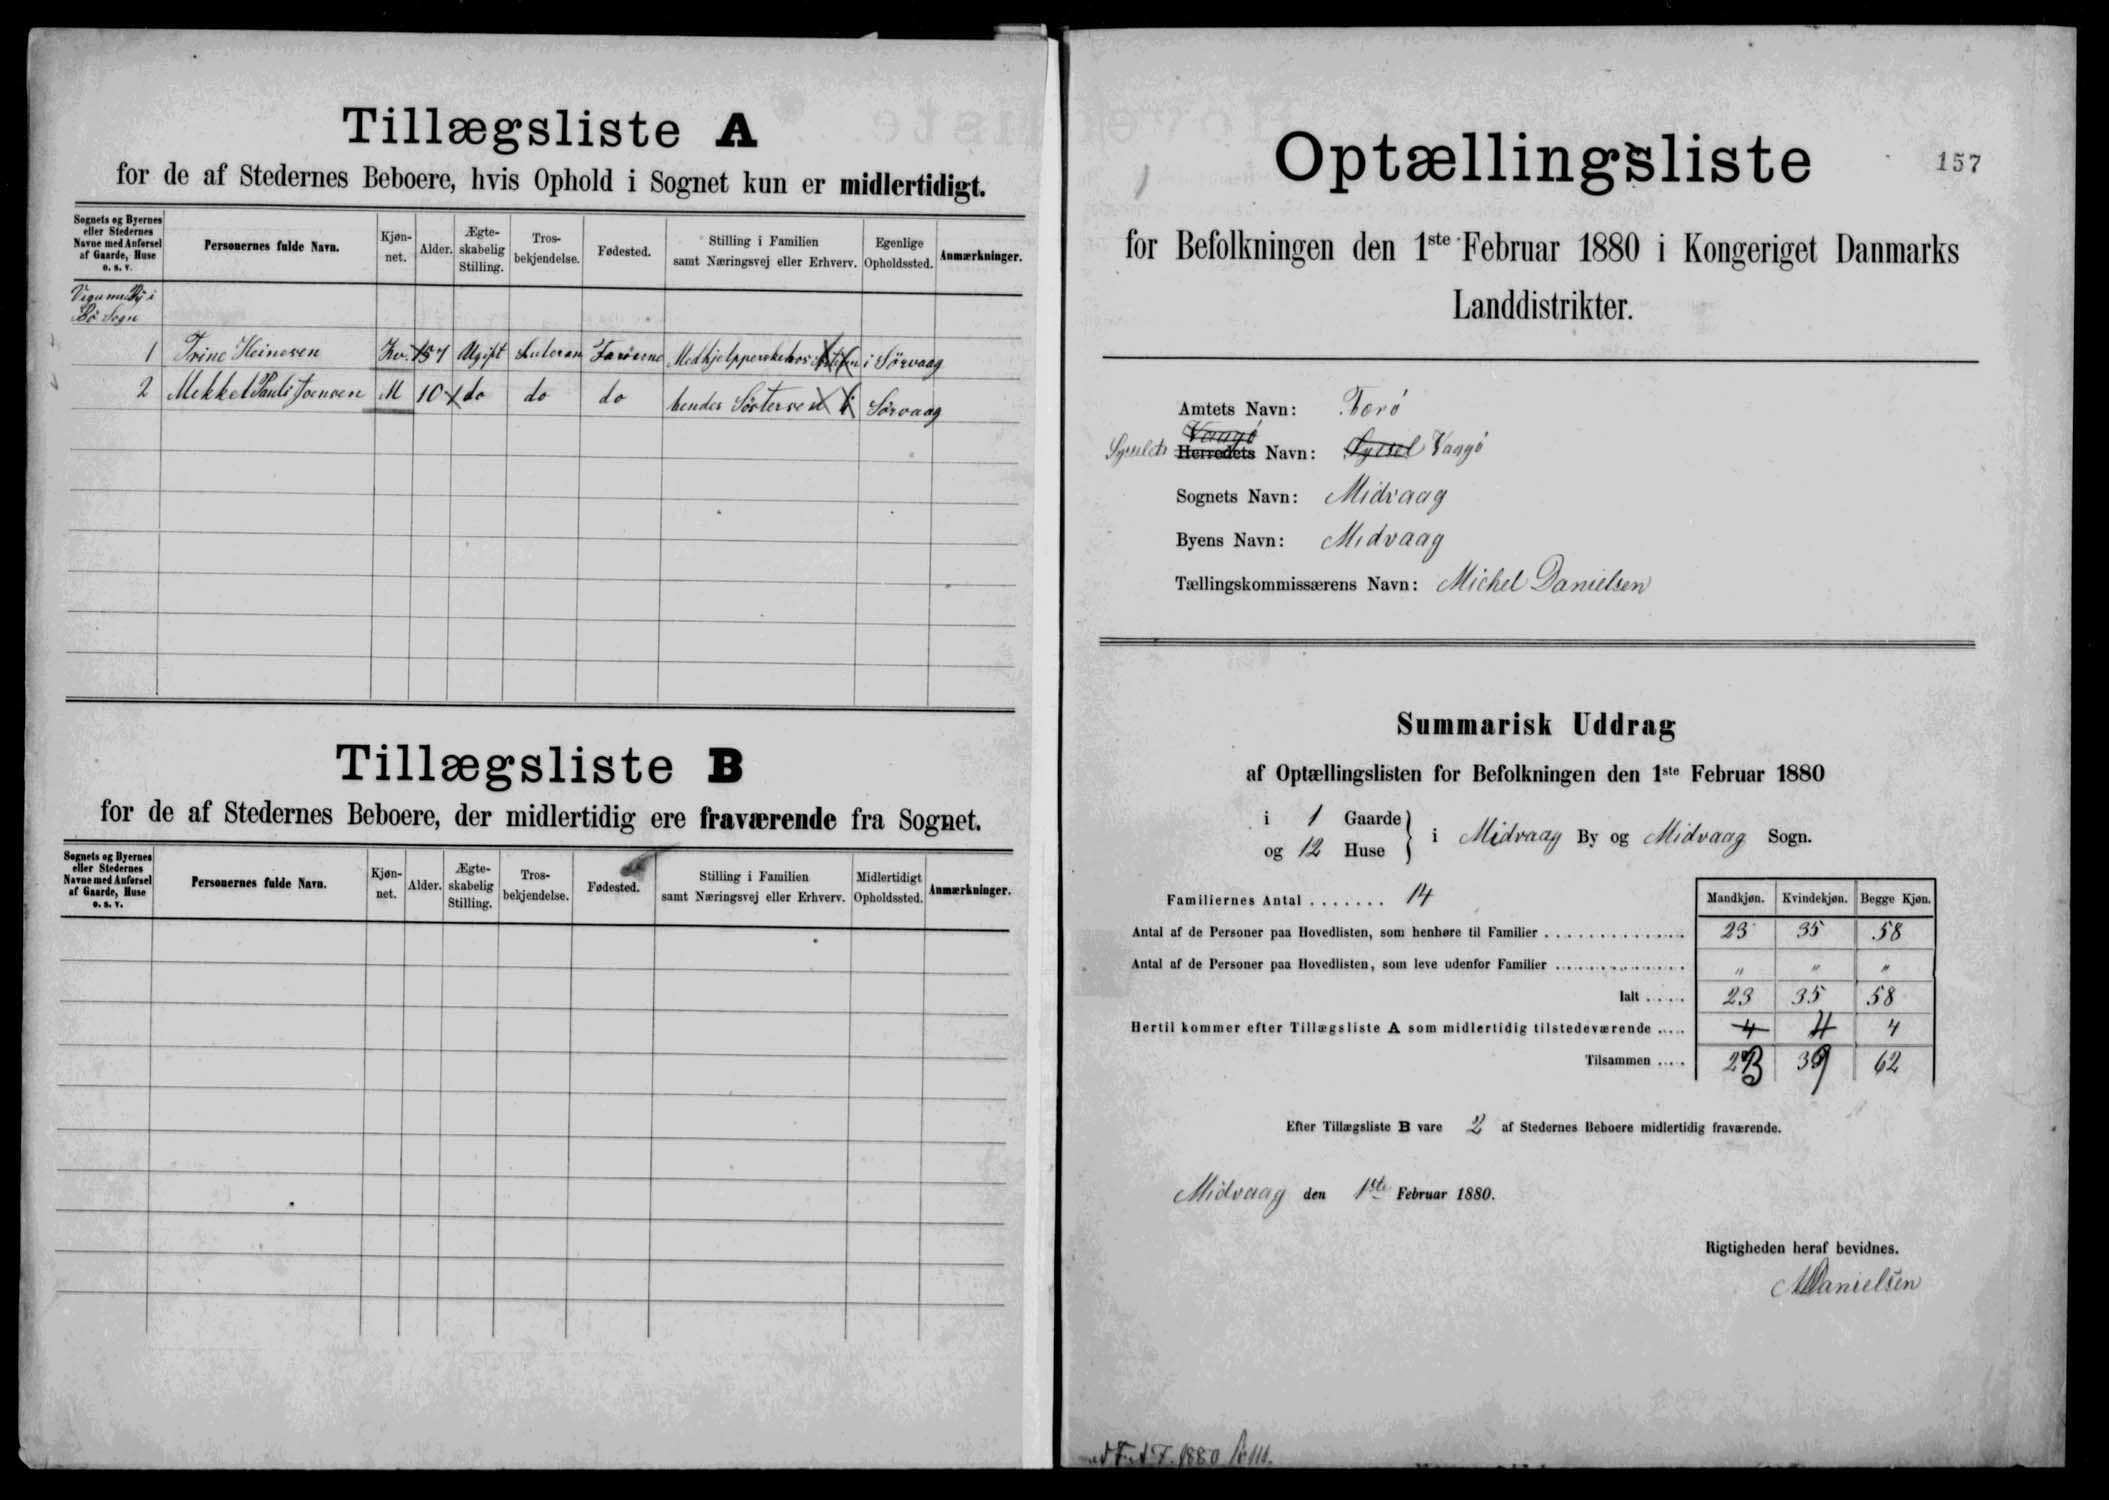 Tillægsliste A
for de af Stedernes Beboere, hvis Ophold i Sognet kun er midlertidigt.
Sognets og Byernes eller Stedernes Navne med Anførsel af Gaarde, Huse o. s. v.
Personernes fulde Navn.
Kjønnet.
Alder.
Ægteskabelig Stilling.
Trosbekjendelse.
Fødested.
Stilling i Familien samt Næringsvej eller Erhverv.
Egenlige Opholdssted.
Anmærkninger.
By i
Bø Sogn
1 Trine Heinesen Kv. Ugift Luteran Færøerne i Sørvaag
2 Mekkel Pauli Joensen M 10 do do do hendes Søstersøn i Sørvaag
Tillægsliste B
for de af Stedernes Beboere, der midlertidig ere fraværende fra Sognet.
Sognets og Byernes eller Stedernes Navne med Anførsel af Gaarde, Huse o. s. v.
Personernes fulde Navn.
Kjønnet.
Alder.
Ægteskabelig Stilling.
Trosbekjendelse.
Fødested.
Stilling i Familien samt Næringsvej eller Erhverv.
Midlertidigt Opholdssted.
Anmærkninger.
Optællingsliste
157
for Befolkningen den 1ste Februar 1880 i Kongeriget Danmarks
Landdistrikter.
Amtets Navn: Færø
Vaagø
Sysselets Herredets Navn: Syssel Vaagø
Sognets Navn: Midvaag
Byens Navn: Midvaag
Tællingskommissærens Navn: Michel Danielsen
Summarisk Uddrag
af Optællingslisten for Befolkningen den 1ste Februar 1880
i 1 Gaarde
og 12 Huse } i Midvaag By og Midvaag Sogn.
Familiernes Antal ....... 14
Mandkjøn. Kvindekjøn. Begge Kjøn.
Antal af de Personer paa Hovedlisten, som henhøre til Familier ................ 23 35 58
Antal af de Personer paa Hovedlisten, som leve udenfor Familier ................ " " "
Ialt ..... 23 35 58
Hertil kommer efter Tillægsliste A som midlertidig tilstedeværende ..... 4 4 4
Tilsammen ..... 23 39 62
Efter Tillægsliste B vare 2 af Stedernes Beboere midlertidig fraværende.
Midvaag den 1ste Februar 1880.
Rigtigheden heraf bevidnes.
MDanielsen